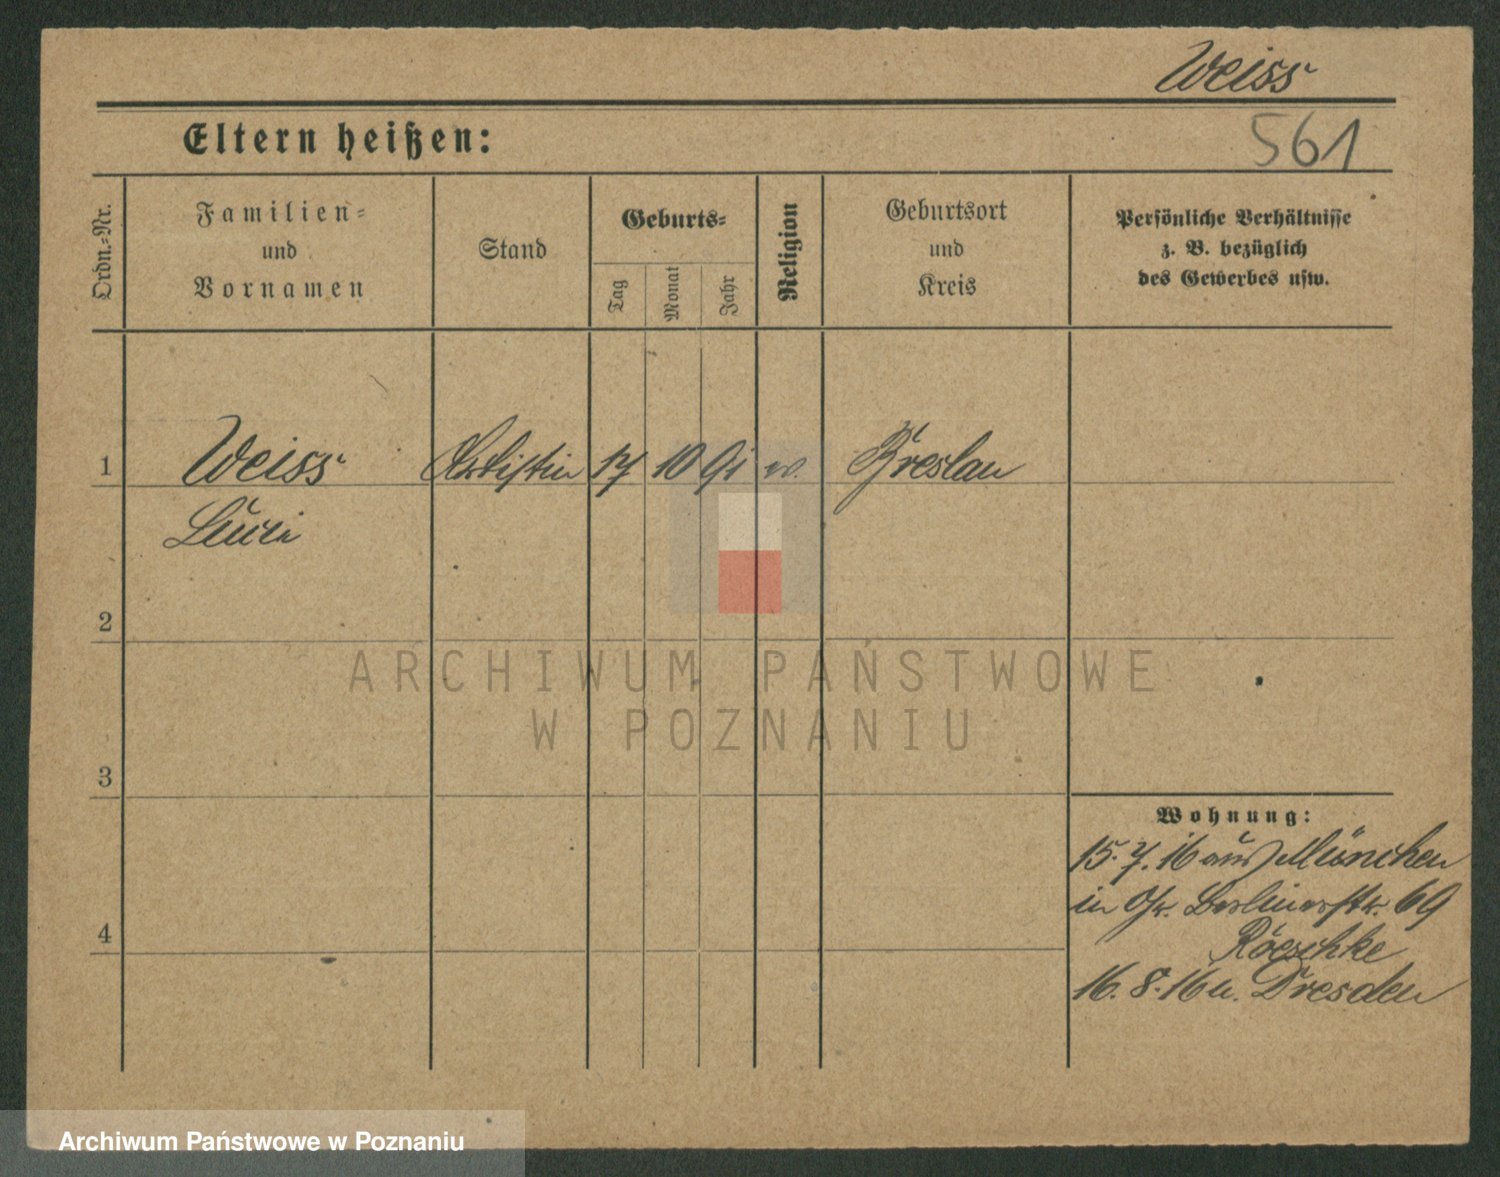 Weiss
Eltern heißen:
561
Ordn.-Nr.
Familien-
und
Vornamen
Stand
Geburts-
Tag
Monat
Jahr
Religion
Geburtsort
und
Kreis
Persönliche Verhältnisse
z. B. bezüglich
des Gewerbes usw.
1
Weiss
Artistin
17
10
91
ev.
Breslau
Luci
2
ARCHIWUM PAŃSTWOWE
W POZNANIU
3
Wohnung:
15.7.16 aus München
in Gr. Berlinerstr. 69
Röeschke
16.8.16 n. Dresden
4
Archiwum Państwowe w Poznaniu